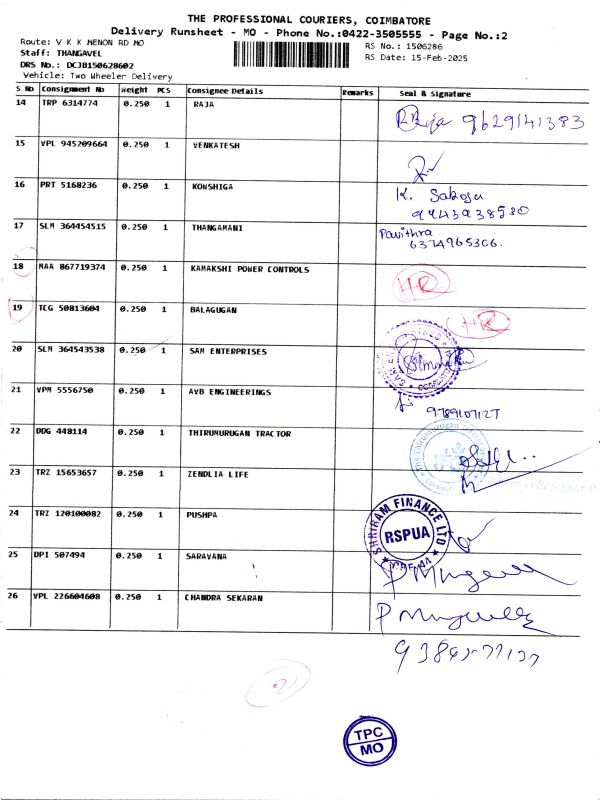 THE PROFESSIONAL COURIERS, COIMBATORE
Delivery Runsheet - MO - Phone No.:0422-3505555 - Page No.:2
Route: V K K MENON RD MO
RS No.: 1506286
Staff: THANGAVEL
RS Date: 15-Feb-2025
DRS No.: DCJB150628602
Vehicle: Two Wheeler Delivery
S No Consignment No Weight PCS Consignee Details Remarks Seal & Signature
14 TRP 6314774 0.250 1 RAJA
9629141383
15 VPL 945209664 0.250 1 VENKATESH
16 PRT 5168236 0.250 1 KOWSHIGA
K.
17 SLM 364454515 0.250 1 THANGAMANI
Pavithra
6374965306.
18 MAA 867719374 0.250 1 KAMAKSHI POWER CONTROLS
19 TCG 50813604 0.250 1 BALAGUGAN
20 SLM 364543538 0.250 1 SAM ENTERPRISES
21 VPM 5556750 0.250 1 AVB ENGINEERINGS
22 DDG 448114 0.250 1 THIRUMURUGAN TRACTOR
23 TRZ 15653657 0.250 1 ZENDLIA LIFE
24 TRZ 120100082 0.250 1 PUSHPA
SHRIRAM FINANCE LTD
RSPUA
25 DPI 507494 0.250 1 SARAVANA
26 VPL 226604608 0.250 1 CHANDRA SEKARAN
TPC
MO